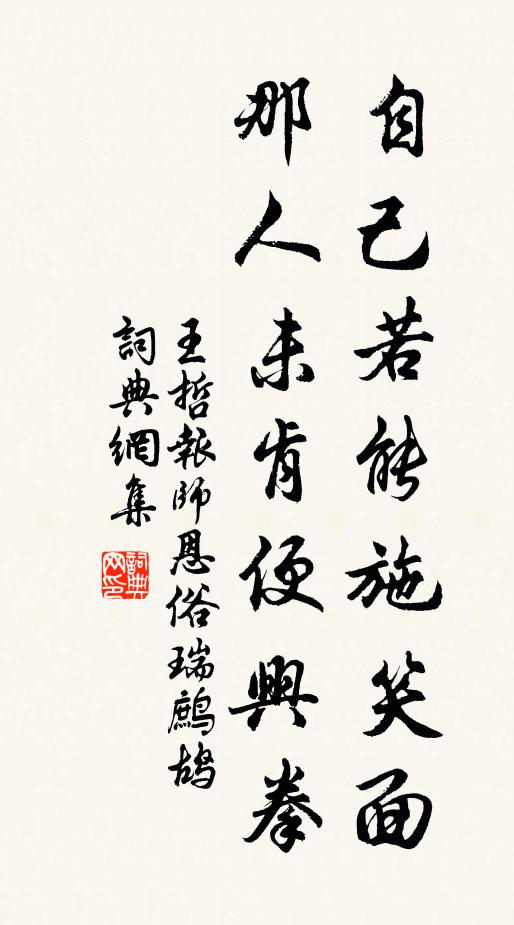 自己若能施笑面
那人未肯便興拳
王哲報師恩俗瑞鷓鴣
詞典網集
詞典
网印